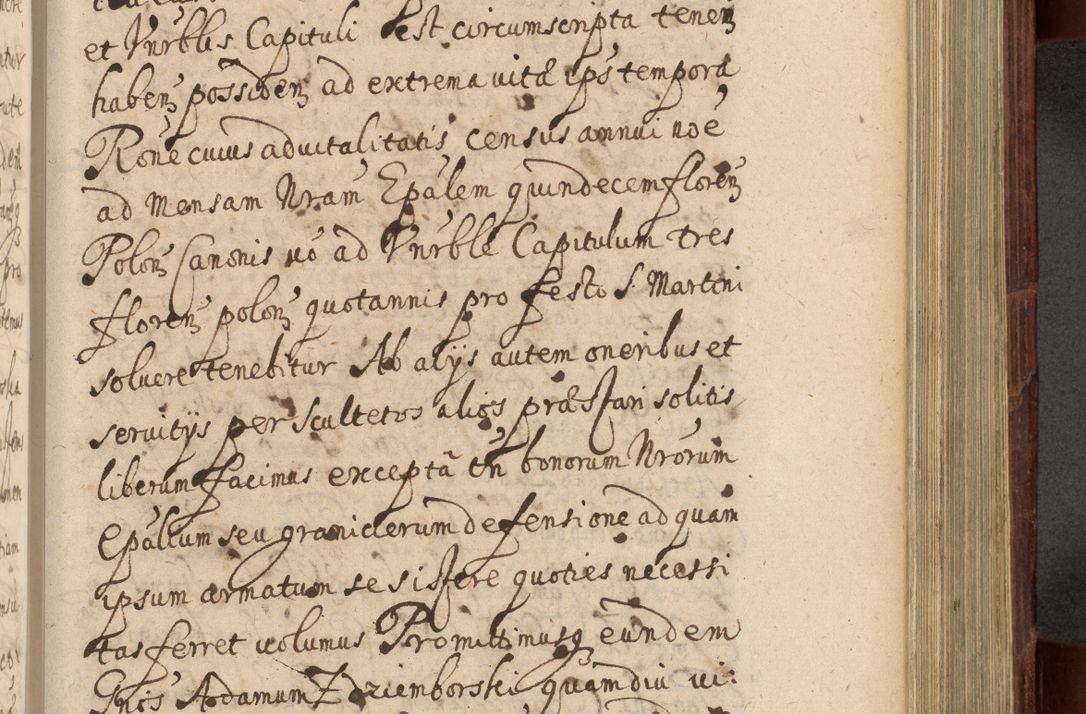 et Vnrblis Capituli est circumscripta tenen
haben possiden ad extrema uitæ ips tempora
Rone cuius aduitalitatis census annui noe
ad Mensam Nram Epalem quindecem floren
Polon Canonis uo ad Vnrble Capitulum tres
floren polon quotannis pro festo S. Martini
soluere tenebitur Ab alijs autem oneribus et
seruitijs per Scultetos alios præstari solitis
liberum facimus exceptâ tn bonorum Nrorum
Epalium seu graniclerum defensione ad quam
ipsum armatum se sistere quoties necessi
tas ferret uolumus Promittimusq eundem
Gnis Adamum Zdziemborski quamdiu ui: